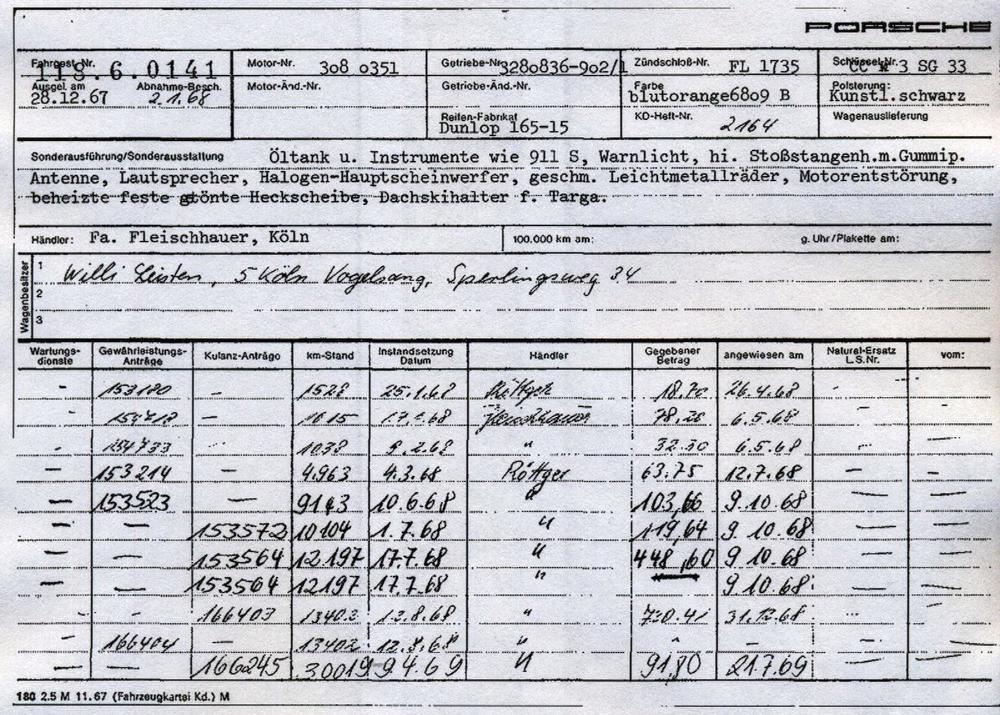 PORSCHE
Fahrgest.Nr. 118.6.0141 Motor-Nr. 308 0351 Getriebe-Nr. 3280836-902/1 Zündschloß-Nr. FL 1735 Schlüssel-Nr. CC * 3 SG 33
Ausgel. am 28.12.67 Abnahme-Besch. 2.1.68 Motor-Änd.-Nr. Getriebe-Änd.-Nr. Farbe blutorange6809 B Polsterung: Kunstl.schwarz
Reifen-Fabrikat Dunlop 165-15 KD-Heft-Nr. 2164 Wagenauslieferung
Sonderausführung/Sonderausstattung Öltank u. Instrumente wie 911 S, Warnlicht, hi. Stoßstangenh.m.Gummip.
Antenne, Lautsprecher, Halogen-Hauptscheinwerfer, geschm. Leichtmetallräder, Motorentstörung,
beheizte feste gtönte Heckscheibe, Dachskihalter f. Targa.
Händler: Fa. Fleischhauer, Köln 100.000 km am: g. Uhr/Plakette am:
Wagenbesitzer
1 Willi Leisten, 5 Köln Vogelsang, Sperlingsweg 34
2
3
Wartungs-dienste Gewährleistungs-Anträge Kulanz-Anträge km-Stand Instandsetzung Datum Händler Gegebener Betrag angewiesen am Natural-Ersatz L.S.Nr. vom:
- 153180 - 1528 25.1.68 Röttger 18.70 26.4.68 - -
- - 1015 68 Fleischhauer 78.20 6.5.68 - -
- - 1038 9.2.68 " 32.30 6.5.68 - -
- 153214 - 4.963 4.3.68 Röttger 63.75 12.7.68 - -
- 153523 - 9143 10.6.68 " 103,66 9.10.68 - -
- - 153572 10104 1.7.68 " 119,64 9.10.68 - -
- - 153564 12.197 17.7.68 " 448,60 9.10.68 - -
- - 153564 12197 17.7.68 " 9.10.68 - -
- - 166403 13402 13.8.68 " 730.41 31.12.68 - -
- 166404 - 13402 68 " - - - -
- - 166245 30019 9.4.69 " 91,80 21.7.69 - -
180 2.5 M 11.67 (Fahrzeugkartei Kd.) M